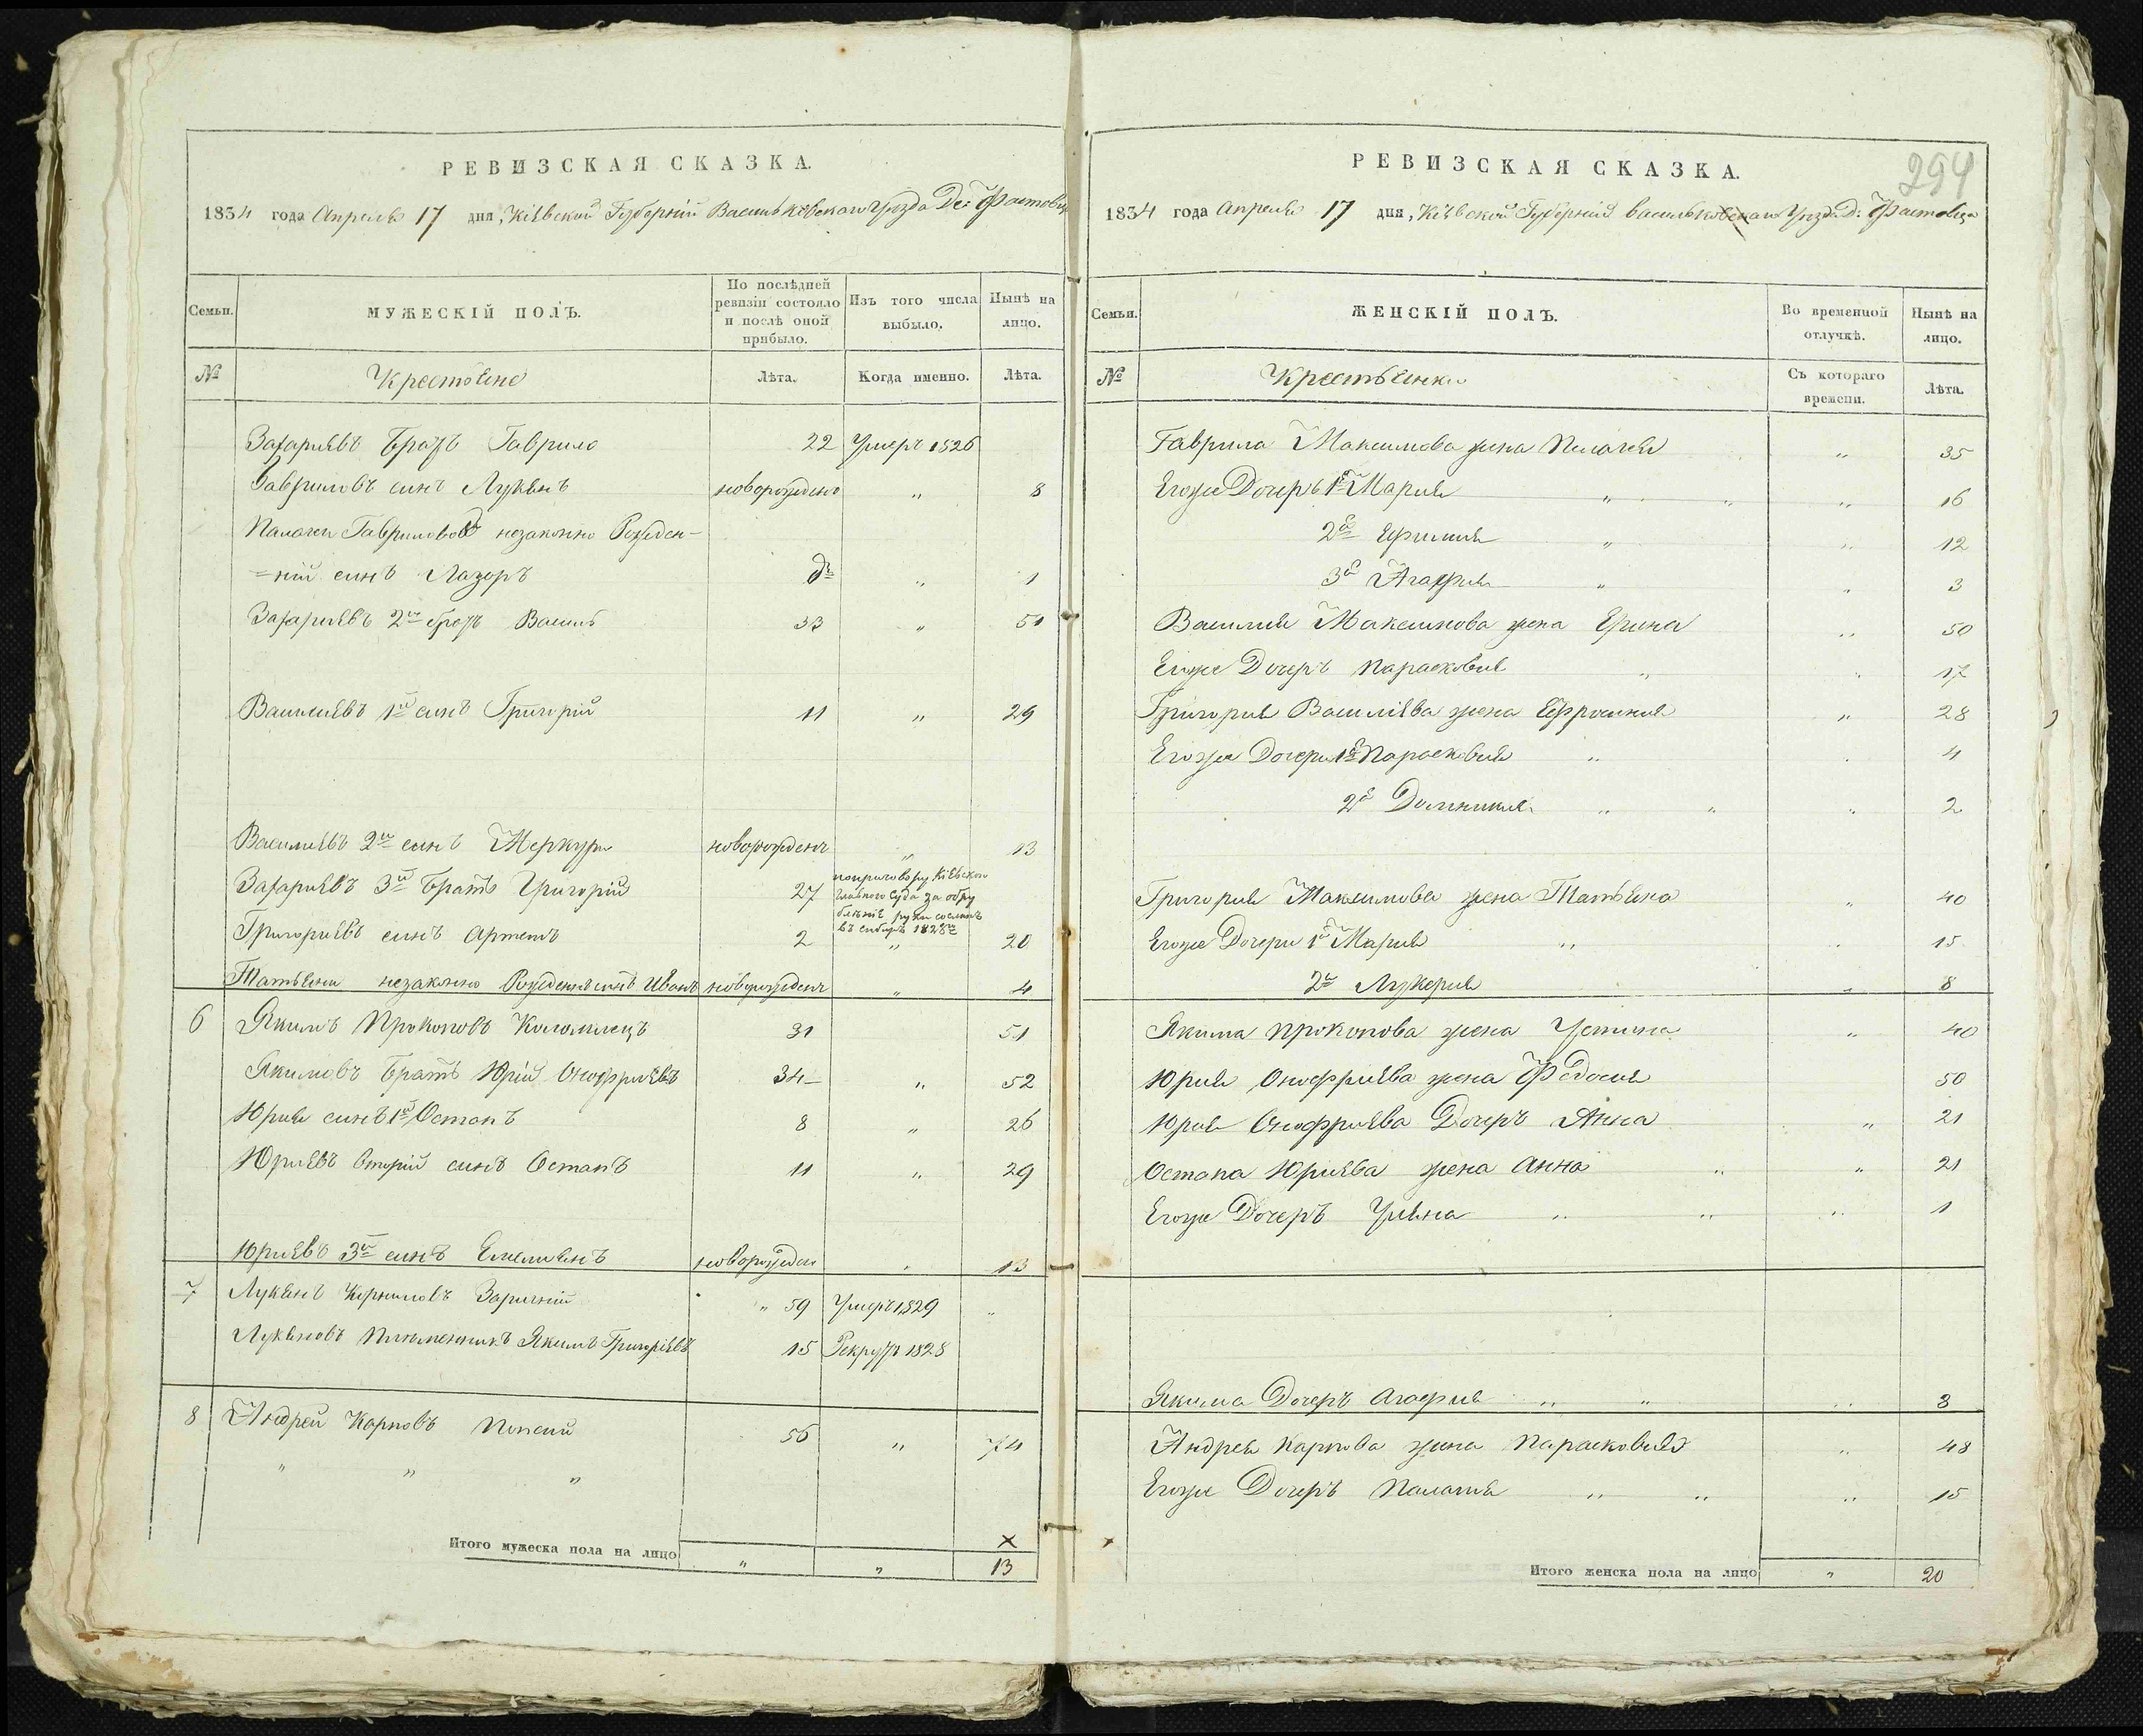 РЕВИЗСКАЯ СКАЗКА.
1834 года Апреля 17 дня, Кіевской Губерніи Васильковскаго Уезда Де: Фастовца
Семьи.
МУЖЕСКІЙ ПОЛЪ.
По послѣдней ревизіи состояло и послѣ оной прибыло.
Изъ того числа выбыло.
Нынѣ на лицо.
№
Крестяне
Лѣта.
Когда именно.
Лѣта.
Захариевъ братъ Гаврило 22 Умеръ 1826
Гавриловъ синъ Лукянъ новорожденъ " 8
Палажки Гавриловой незаконно Рожден-
=ній синъ Лазоръ до " 1
Захариевъ 2й братъ Василь 33 " 51
Василиевъ 1й синъ Григорій 11 " 29
Василиевъ 2й синъ Меркури новорожденъ " 13
Захариевъ 3й братъ Григорій 27 поприговору Кіевского
главного суда за обру
бленіе руки сосланъ
въ сибирь 1828го
Григориевъ синъ Артемъ 2 " 20
Татьяни незаконно Рожденъ синъ Иванъ новорожденъ " 4
6 Якимъ Прокоповъ Коломиецъ 31 51
Якимовъ братъ Юрій Онофриевъ 34 " 52
Юрия синъ 1й Остапъ 8 " 26
Юриевъ вторій синъ Остапъ 11 " 29
Юриевъ 3й синъ Емелиянъ новорожден " 13
7 Лукянъ Корниловъ Заричній " 59 Умеръ 1829 "
Лукяновъ племенникъ Якимъ Григоріевъ 15 Рекрутъ 1828
8 Андрей Карповъ 56 " 74
" " "
Итого мужеска пола на лицо " " 13
294
РЕВИЗСКАЯ СКАЗКА.
1834 года Апреля 17 дня, Кіевской Губерніи Васильковскаго Уезда Д: Фастовца
Семьи.
ЖЕНСКІЙ ПОЛЪ.
Во временной отлучкѣ.
Нынѣ на лицо.
№
Крестьянки
Съ котораго времени.
Лѣта.
Гаврила Максимова жена Пелагея " 35
Егоже Дочеръ 1я Мария " " " 16
2я Ефимия " " 12
3я Агафия " " 3
Василия Максимова жена Ерина " 50
Егоже Дочеръ Парасковия " " 17
Григория Василіева жена Ефросиния " 28
Егоже Дочери 1я Парасковия " " 4
2я Домникия " " " 2
Григория Максимова жена Татьяна " 40
Егоже Дочери 1я Мария " " 15
2я Лукерия " 8
Якима Прокопова жена Устина " 40
Юрия Онофриева жена Федосия 50
Юрия Онофриева Дочеръ Анна " 21
Остапа Юриева жена Анна " " 21
Егоже Дочеръ Улияна " " " 1
Якима Дочеръ Агафия " " " 3
Андрея Карпова жена Парасковия " 48
Егоже Дочеръ Палагия " " " 15
Итого женска пола на лицо " 20